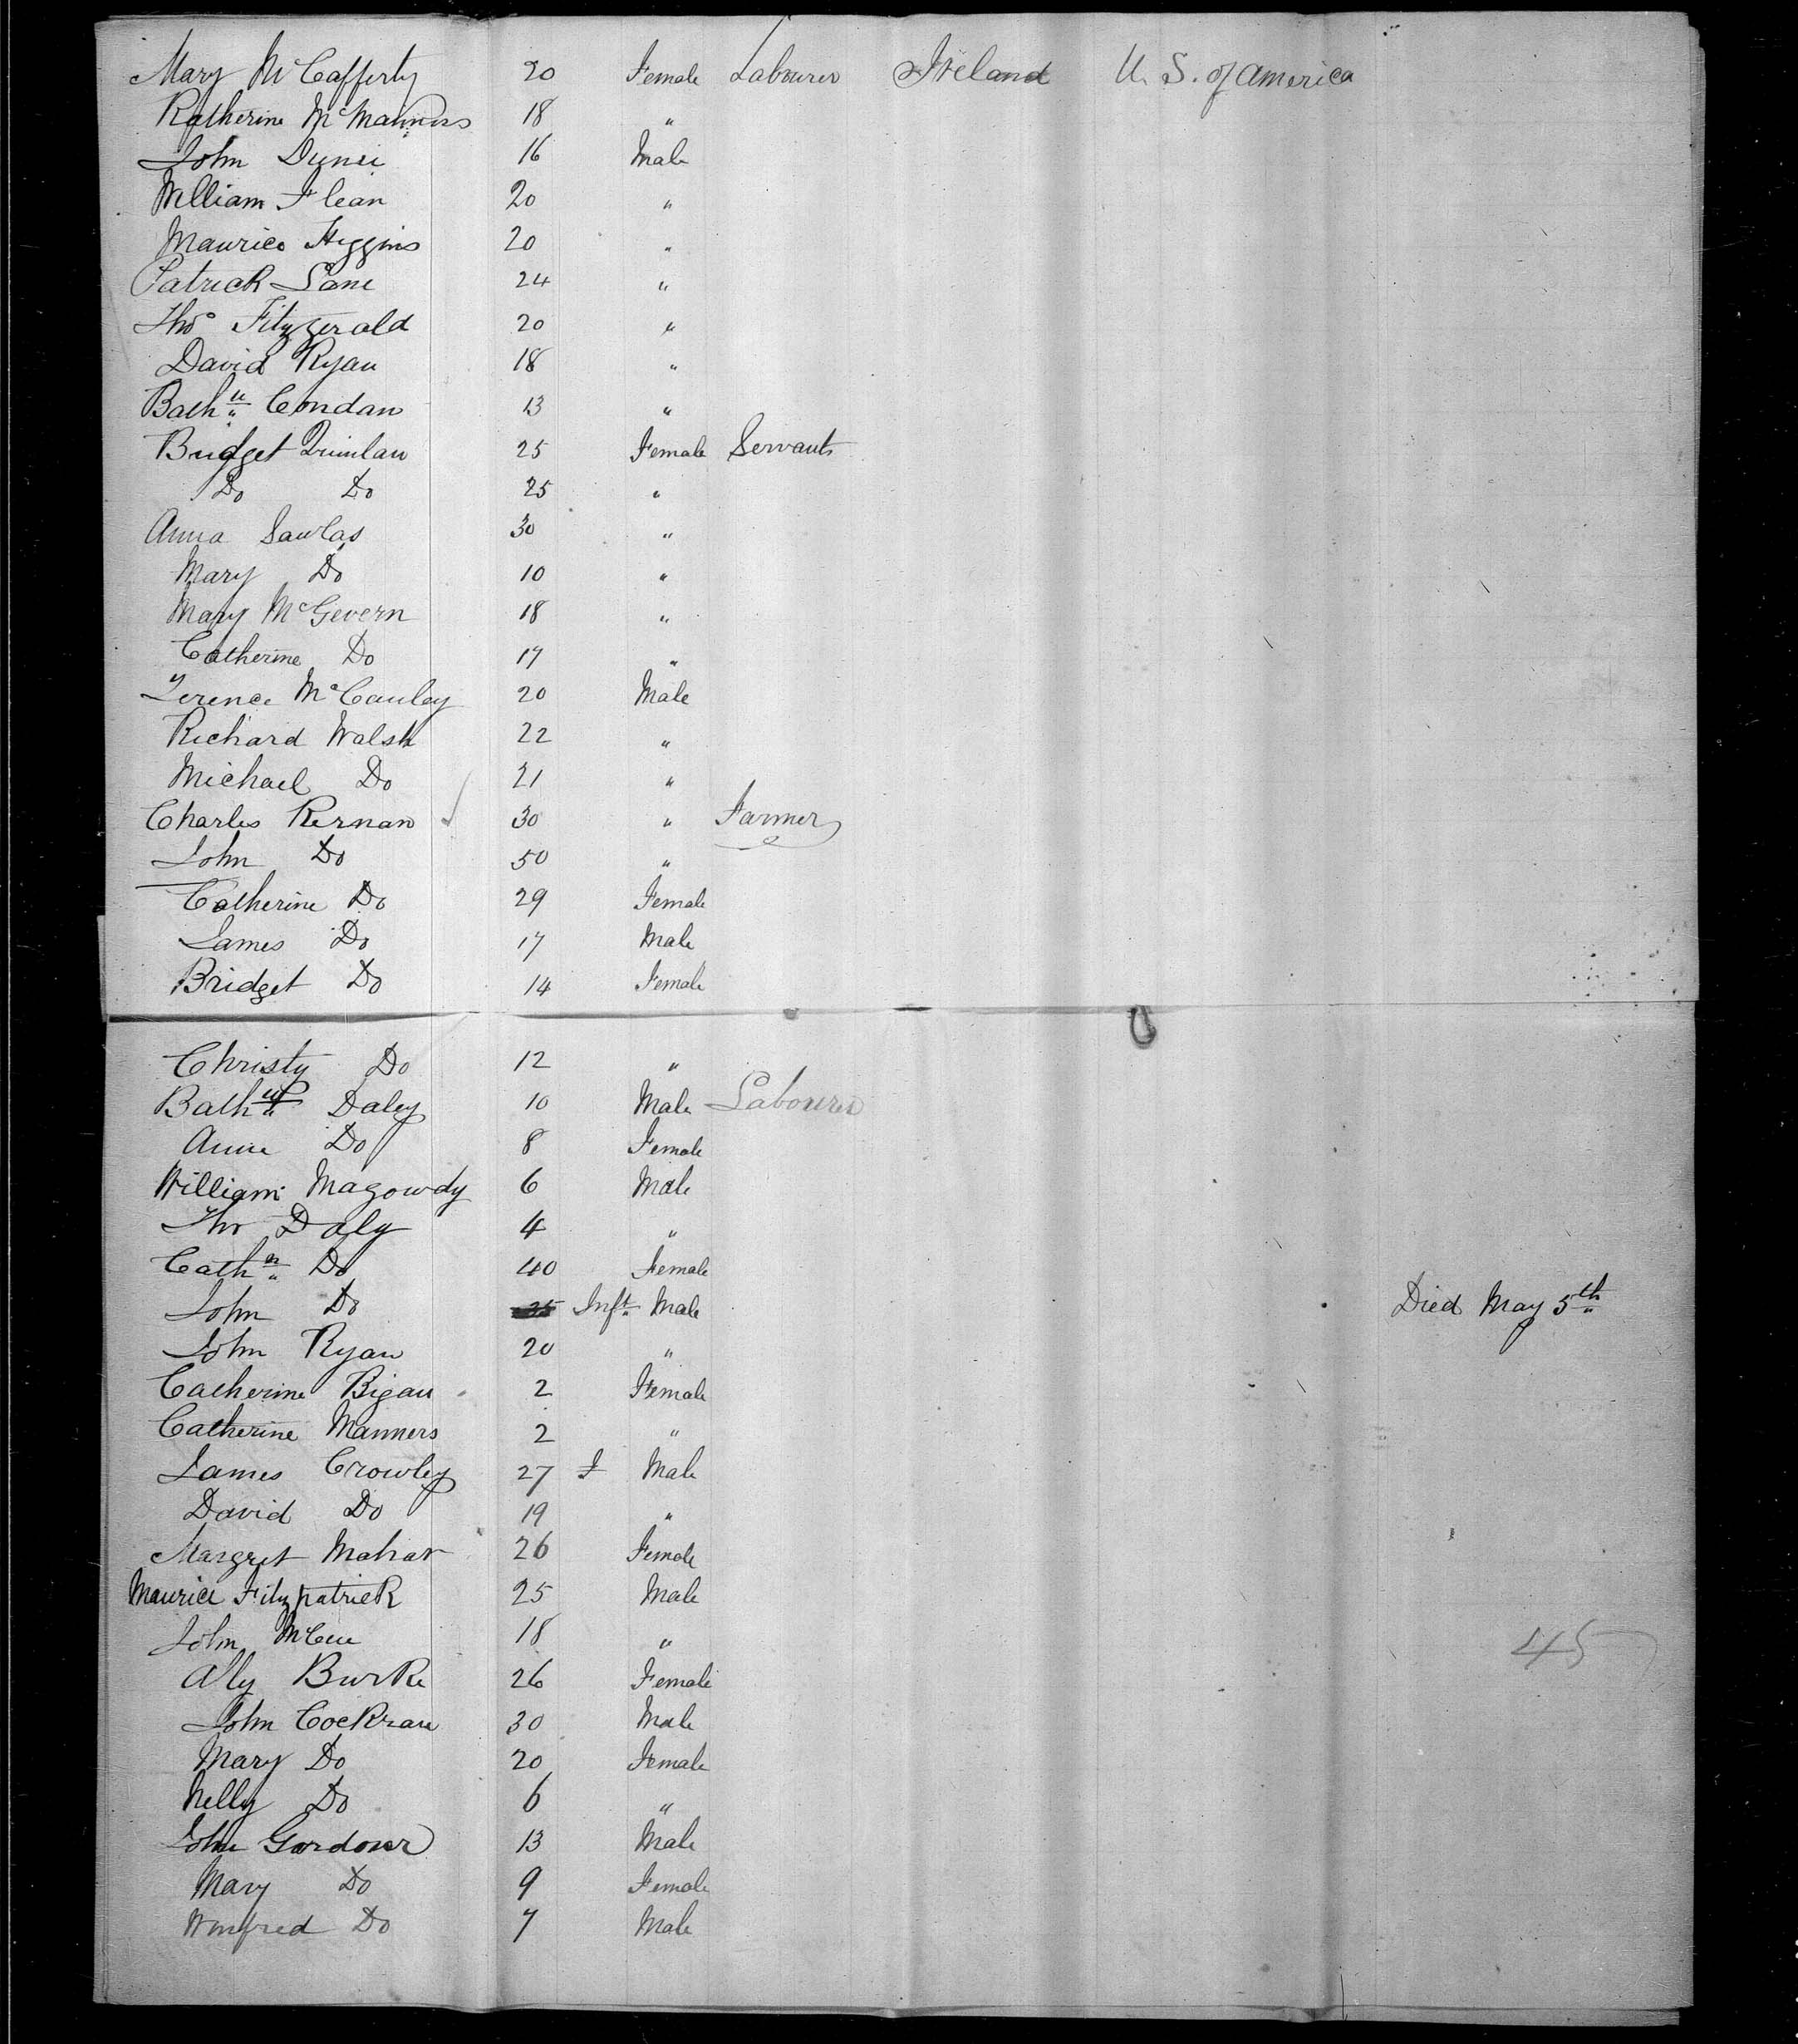 Mary McCafferty 20 Female Labourer Ireland U. S. of America
Katherine McManners 18 "
John Dynei 16 Male
William Flean 20 "
Maurice Higgins 20 "
Patrick Lane 24 "
Tho° Fitzgerald 20 "
David Ryan 18 "
Bath Condan 13 "
Bridget Quinlan 25 Female Servants
Do Do 25 "
Anna Sawlas 30 "
Mary Do 10 "
Mary McGevern 18 "
Catherine Do 17 "
Terence McCauley 20 Male
Richard Walsh 22 "
Michael Do 21 "
Charles Kernan 30 " Farmer
John Do 50 "
Catherine Do 29 Female
James Do 17 Male
Bridget Do 14 Female
Christy Do 12 "
Bath Daley 10 Male Labourer
Anne Do 8 Female
William Magowdy 6 Male
Tho Daly 4 "
Cathn Do 40 Female
John Do Inft Male Died May 5th
John Ryan 20 "
Catherine Bigan 2 Female
Catherine Manners 2 "
James Crowley 27 Male
David Do 19 "
Margret Mahar 26 Female
Maurice Fitzpatrick 25 Male
John McCue 18 "
Ally Burke 26 Female
John Cockran 30 Male
Mary Do 20 Female
Nelly Do 6 "
John Gordon 13 Male
Mary Do 9 Female
Winfred Do 7 Male
45